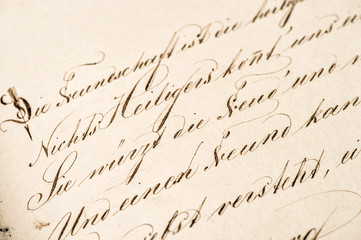 Die Freundschaft ist die heilig
Nichts Heiligers konnt' uns ei
Sie würzt die Freud' und
Und einen Freund kan
liebst versteht, ei